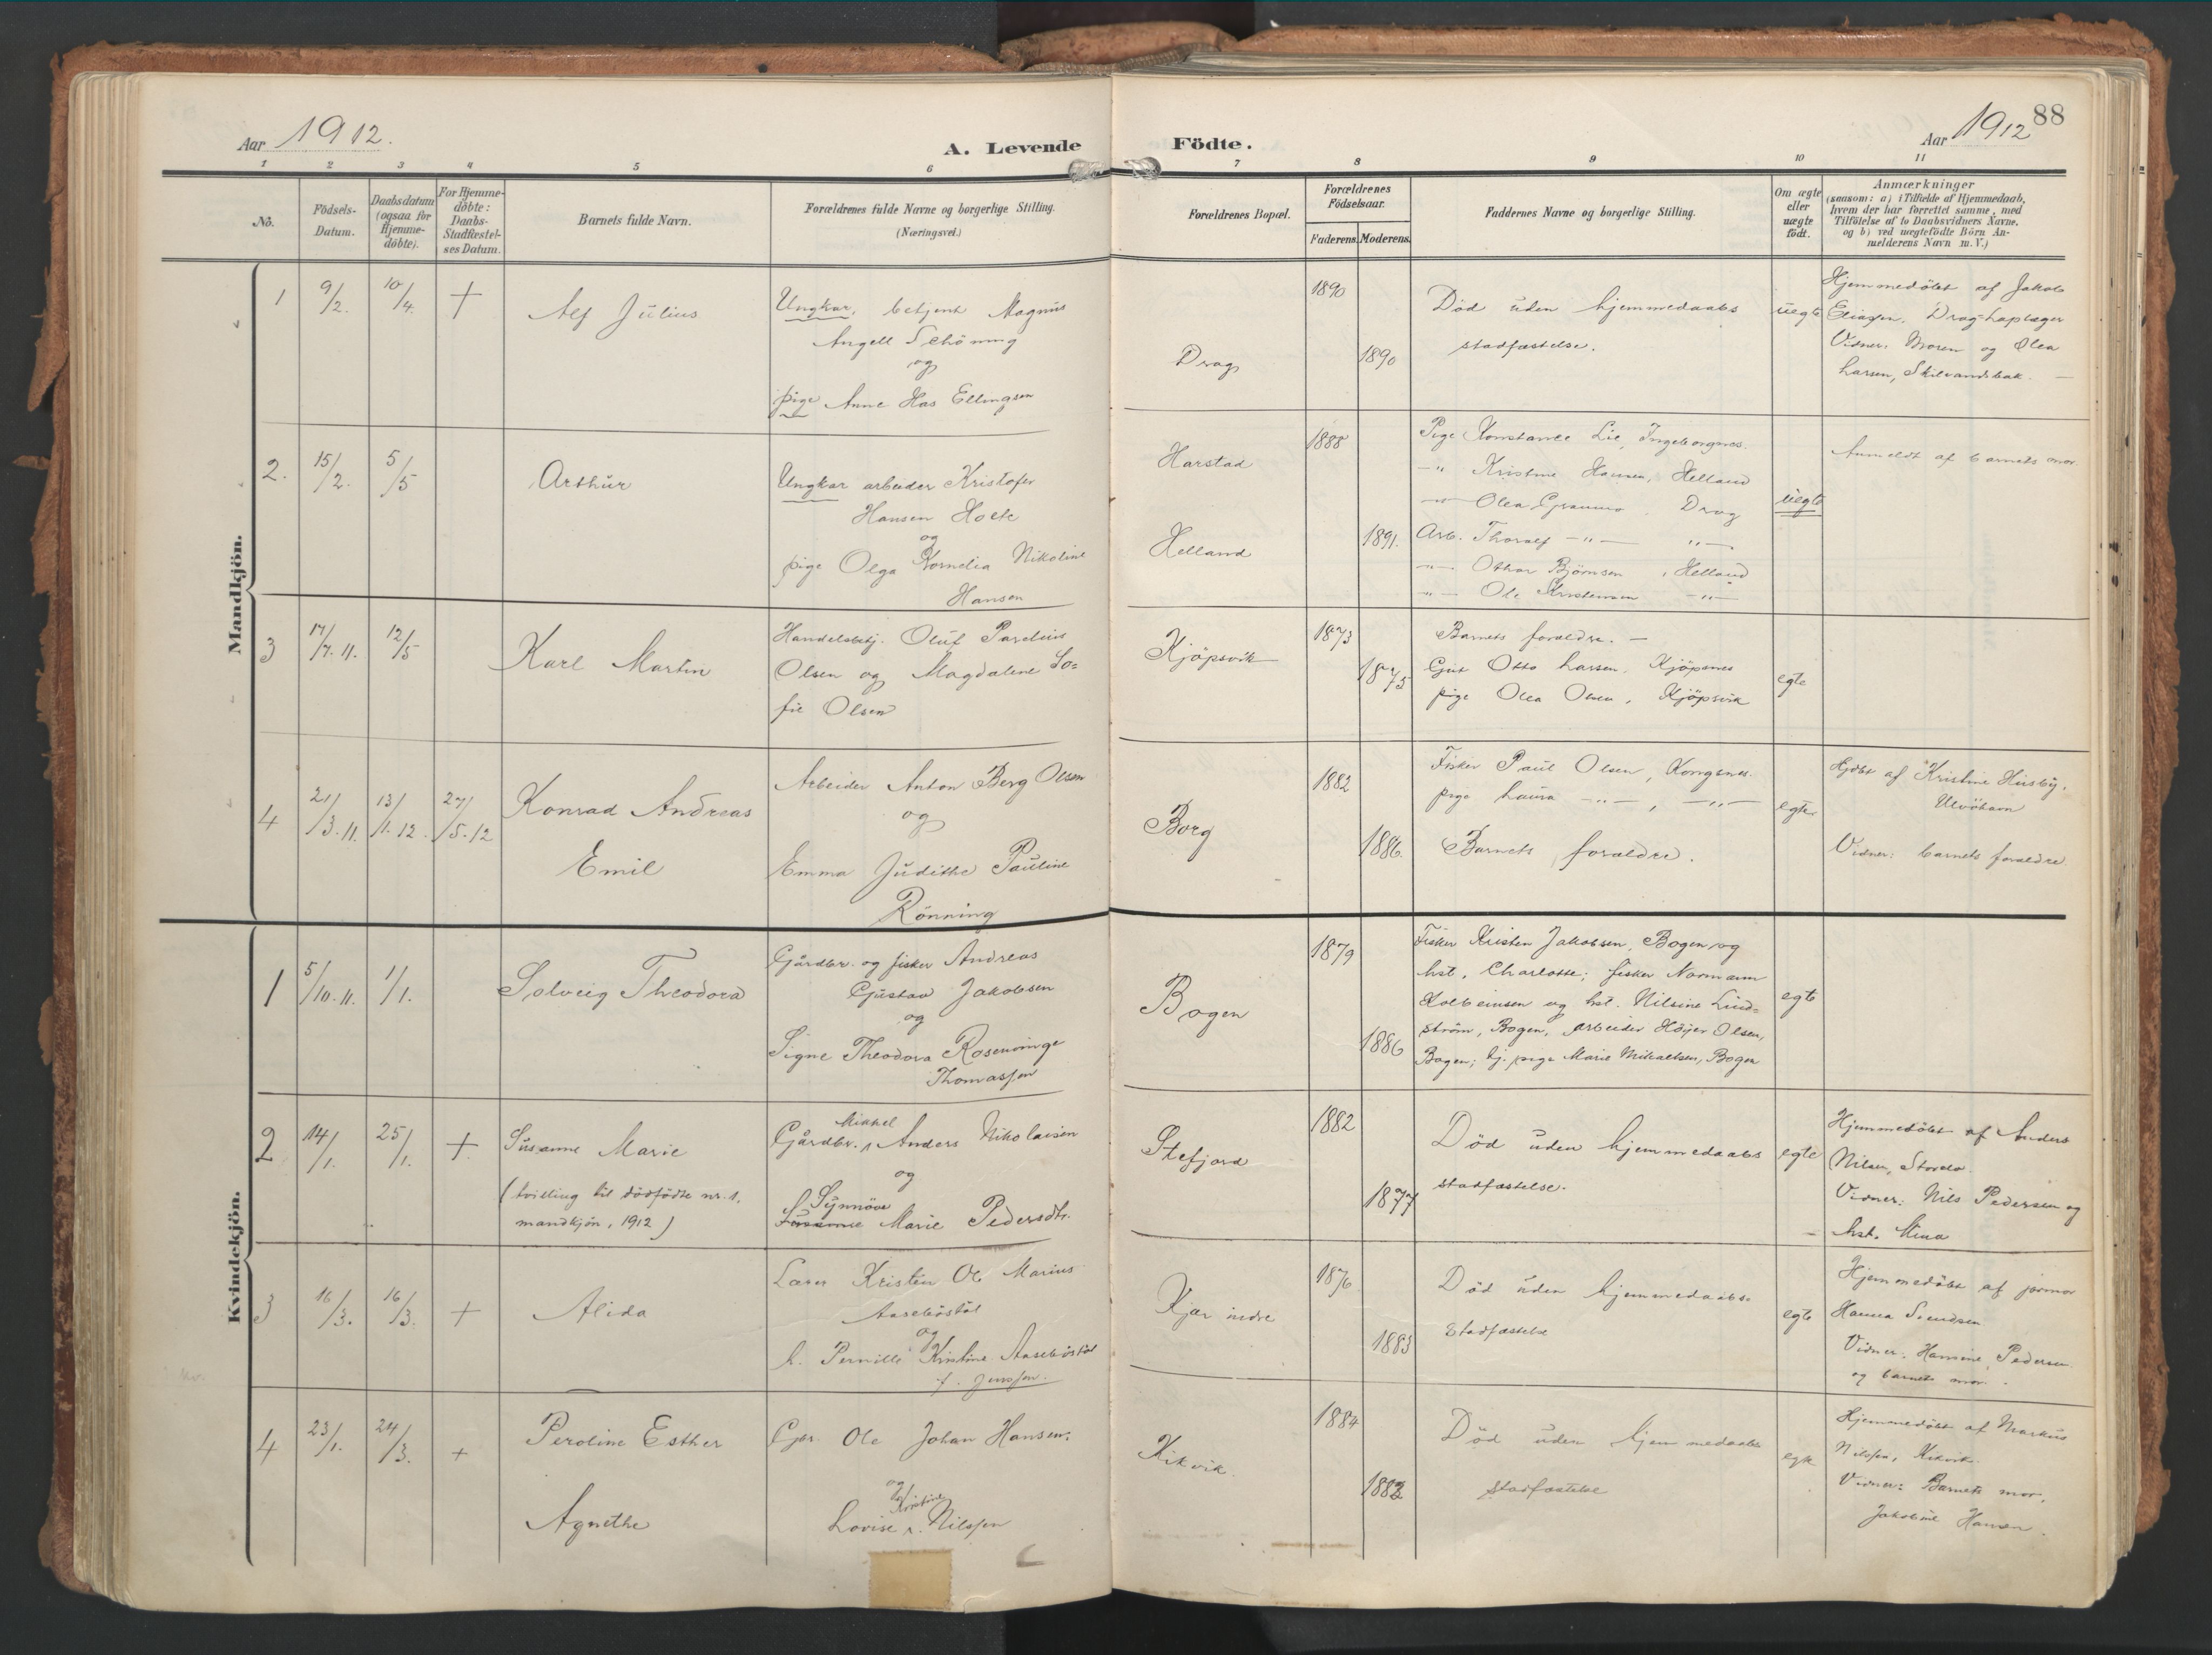 Aar 1912.
A. Levende Födte.
Aar 1912
88
1 2 3 4 5 6 7 8 9 10 11
No.
Födsels-Datum.
Daabsdatum (ogsaa for Hjemme-döbte).
For Hjemme-döbte: Daabs-Stadfæstel-ses Datum.
Barnets fulde Navn.
Forældrenes fulde Navne og borgerlige Stilling.
(Næringsvei.)
Forældrenes Bopæl.
Forældrenes Födselsaar.
Faderens. Moderens.
Faddernes Navne og borgerlige Stilling.
Om ægte eller uægte födt.
Anmærkninger
(saasom: a) i Tilfælde af Hjemmedaab,
hvem der har forrettet samme, med
Tilföielse af to Daabsvidners Navne,
og b) ved uægtefödte Börn An-
melderens Navn m. V.)
Mandkjön.
1
9/2.
10/4.
+
Alf Julius
Ungkar, betjent Magnus
Angell Schöning
og
pige Anne Has Ellingsen
Drag
1890
1890
Död uden hjemmedaabs
stadfæstelse.
uegte
Hjemmedöbt af Jakob
Eliassen, Drag
Vidner: Moren og Olea
Larsen,
2.
15/2.
5/5
Arthur
Ungkar arbeider Kristofer
Hansen Holte
og
pige Olga Kornelia Nikoline
Hansen
Harstad
Helland
1888
1891.
Pige Konstance Lie, Ingeborgnes.
-"- Kristine Hansen, Helland
-"- Olea Granmo, Drag
Arb. Thoralf -"- -"-
-"- Othar Björnsen, Helland
-"- Ole Kristensen -"-
uegte
Anmeldt af barnets mor.
3
17/7.11.
12/5
Karl Martin
Handelsbetj. Oluf Parelius
Olsen og Magdalene So=
fie Olsen
Kjöpsvik
1873
1875
Barnets forældre. —
Gut Otto Larsen, Kjöpsnes
pige Olea Olsen, Kjöpsvik
egte
4
21/3.11.
13/1.12.
27/5.12
Konrad Andreas
Emil
Arbeider Anton Berg Olsen
og
Emma Judithe Pauline
Rönning
Borg
1882
1886.
Fisker Paul Olsen, Kongsnes.
pige Laura -"-, -"-
Barnets forældre.
egte
Hjdbt af Kristine Husby,
Ulvöhavn
Vidner: barnets forældre
Kvindekjön.
1
5/10.11.
1/1.
Solveig Theodora
Gårdbr. og fisker Andreas
Gustav Jakobsen
og
Signe Theodora Rosenvinge
Thomassen
Bogen
1879
1886
Fisker Kristen Jakobsen, Bogen og
hst. Charlotte; fisker Normann
Kolbeinsen og hst. Nilsine Lind=
ström, Bogen, arbeider Höjer Olsen,
Bogen; tj. pige Marie Mikaelsen, Bogen
egte
2
14/1.
25/1.
+
Susanne Marie
(tvilling til dödfödte nr. 1,
mandkjön, 1912)
Mikkel
Gårdbr. Anders Nikolaisen
og
Synnöve
Susanne Marie Pedersdtr.
Stefjord
1882
1877
Död uden hjemmedaabs
stadfæstelse.
egte
Hjemmedöbt af Anders
Nilsen,
Vidner: Nils Pedersen og
hst. Stina
3
16/3.
16/3.
+
Alida
Lærer Kristen Ole Marius
Aaseböstöl
og
h. Pernille Kristine Aaseböstöl
f. Jenssen.
Kjær indre
1876
1883
Död uden hjemmedaabs
Stadfæstelse
egte
Hjemmedöbt af jormor
Hanna Svendsen
Vidner: Hansine Pedersen
og barnets mor.
4
23/1.
24/3.
+
Peroline Esther
Agnethe
Gbr. Ole Johan Hansen.
og
Kristine
Lovise Nilssen
Kikvik.
1884
1883
Död uden hjemmedaabs
stadfæstelse
egte
Hjemmedöbt af Markus
Nilssen, Kikvik.
Vidner: Barnets mor,
Jakobine Hansen.